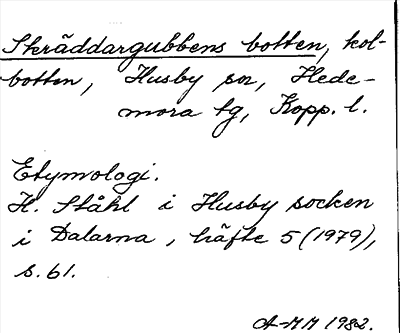 Skräddargubbens botten, kol-
botten, Husby sn, Hede-
mora tg, Kopp. l.
Etymologi.
H. Ståhl i Husby socken
i Dalarna, häfte 5 (1979),
s. 61.
A-MM 1982.